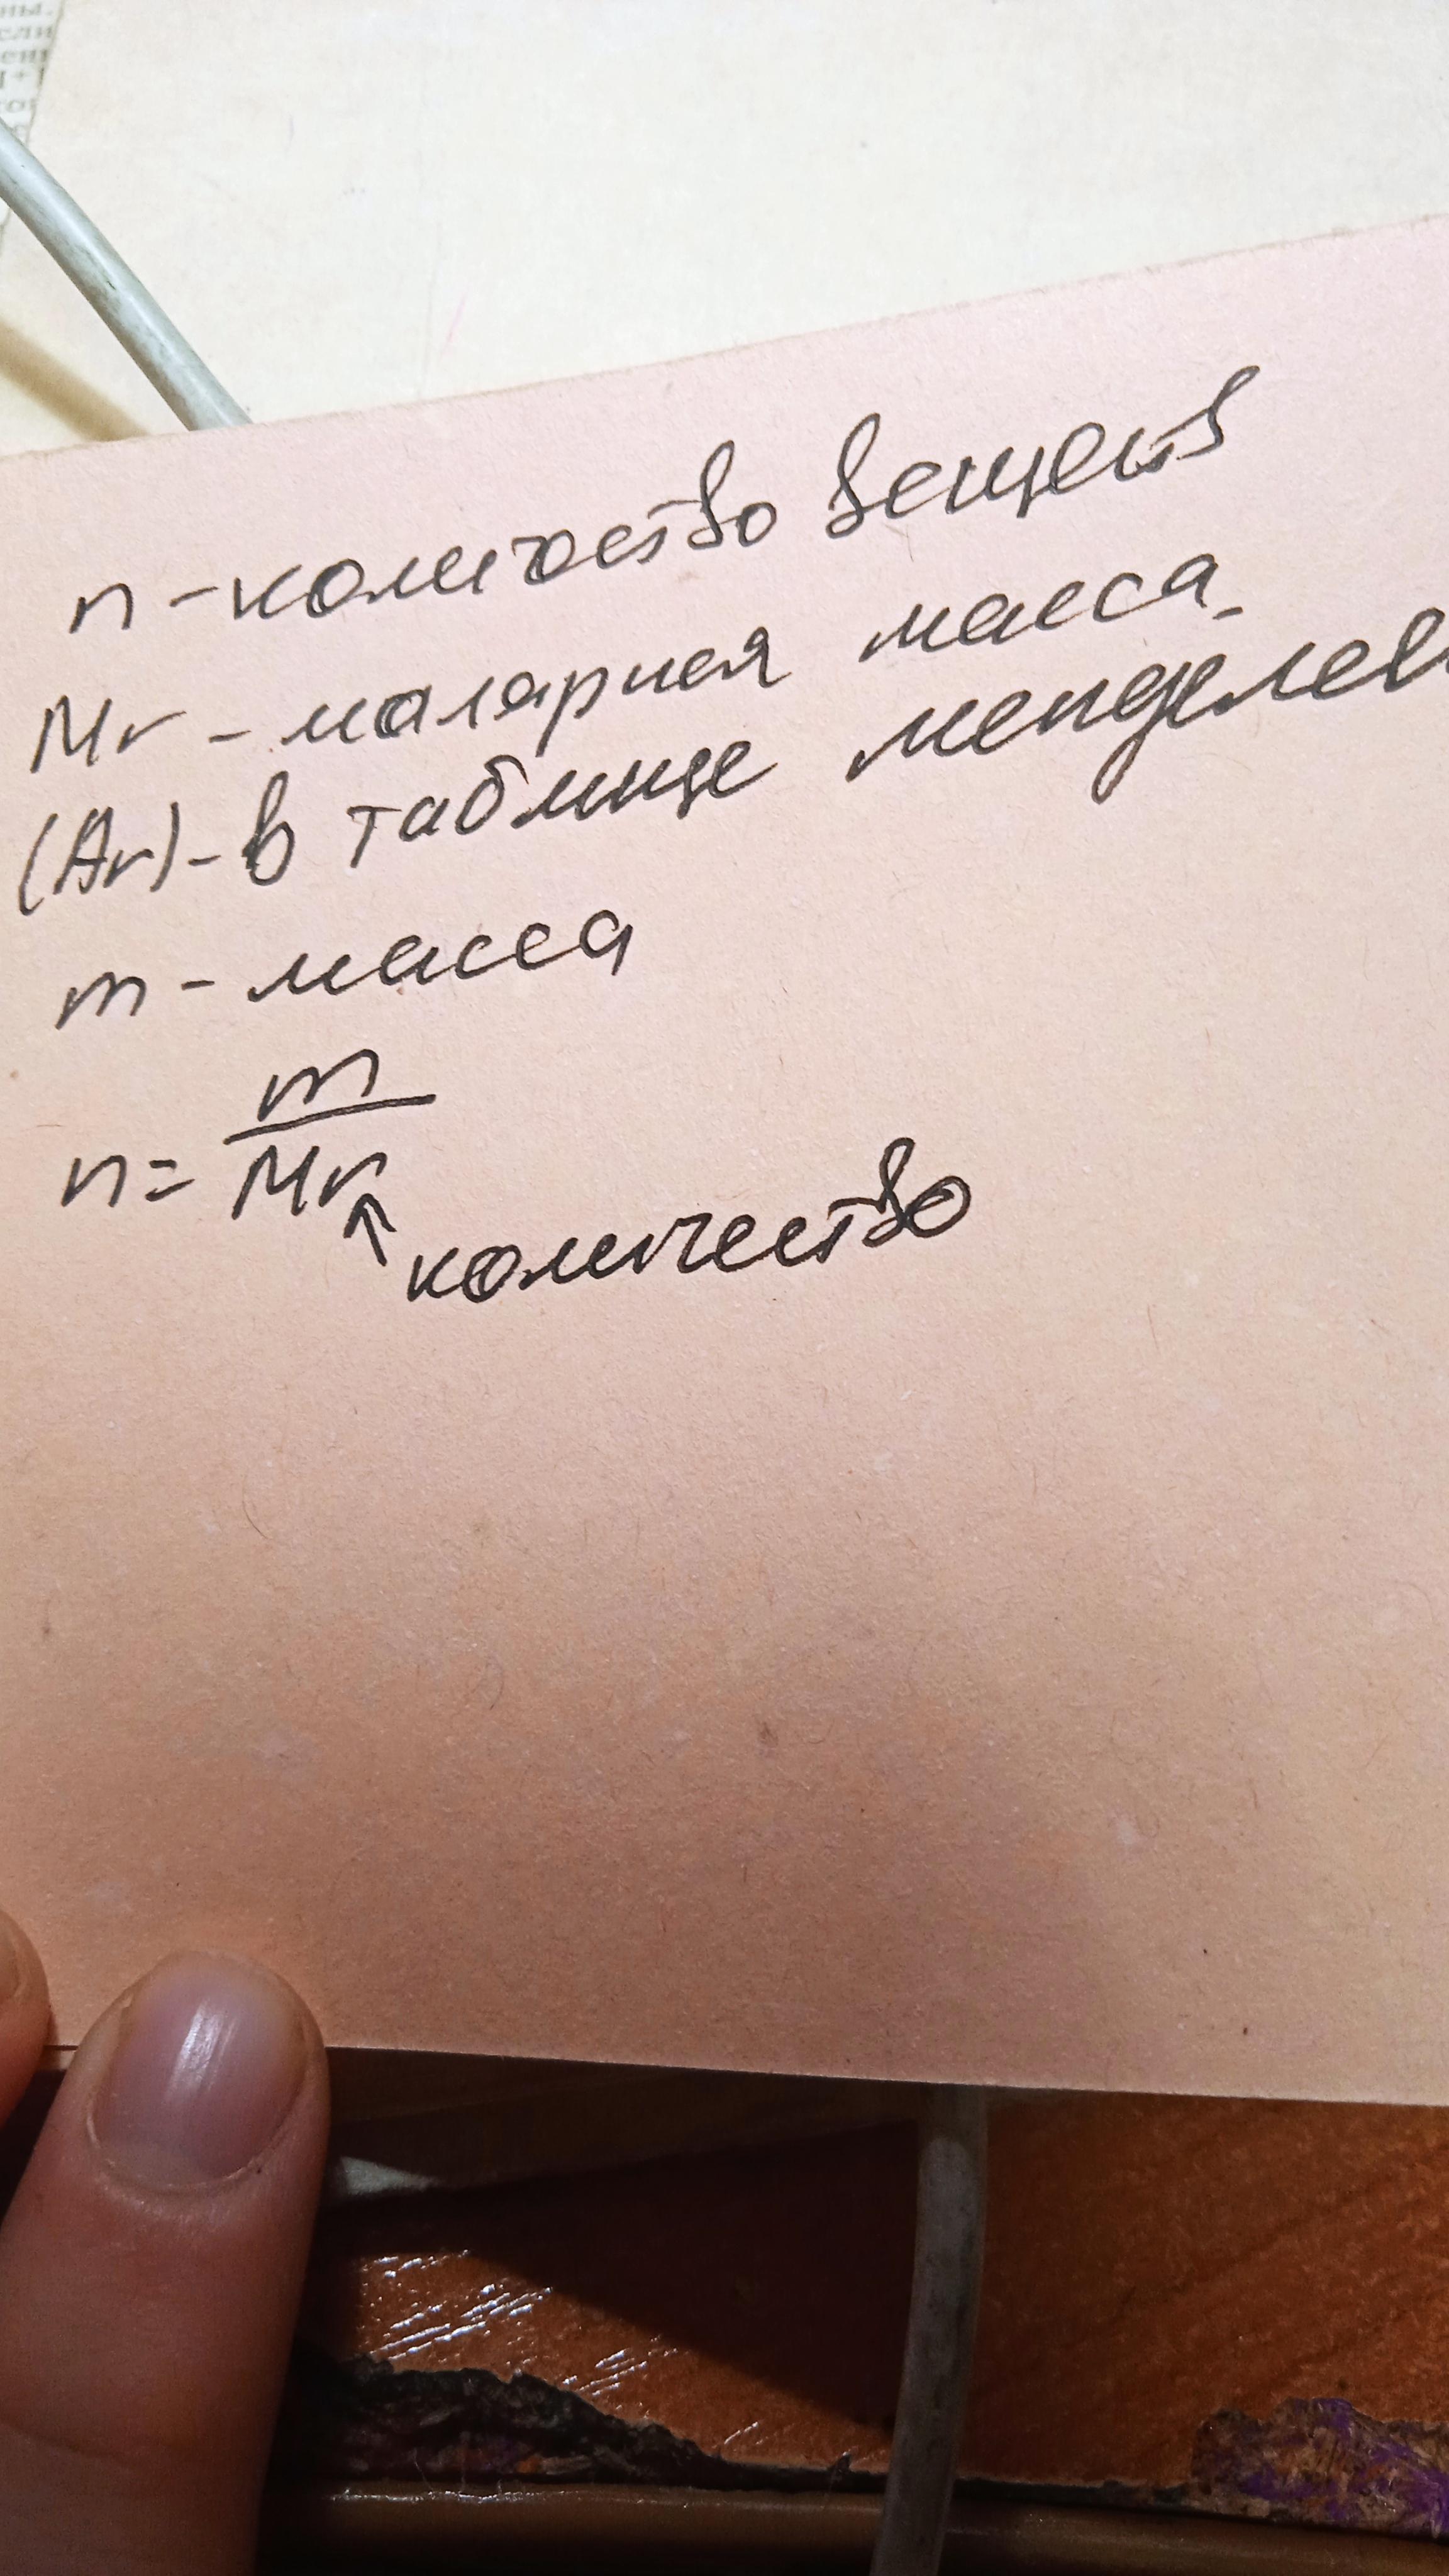 ны.
если
n - количество веществ
Mr - молярная масса.
(Ar) - в таблице менделев
m - масса
m
n = Mr
↑ количество